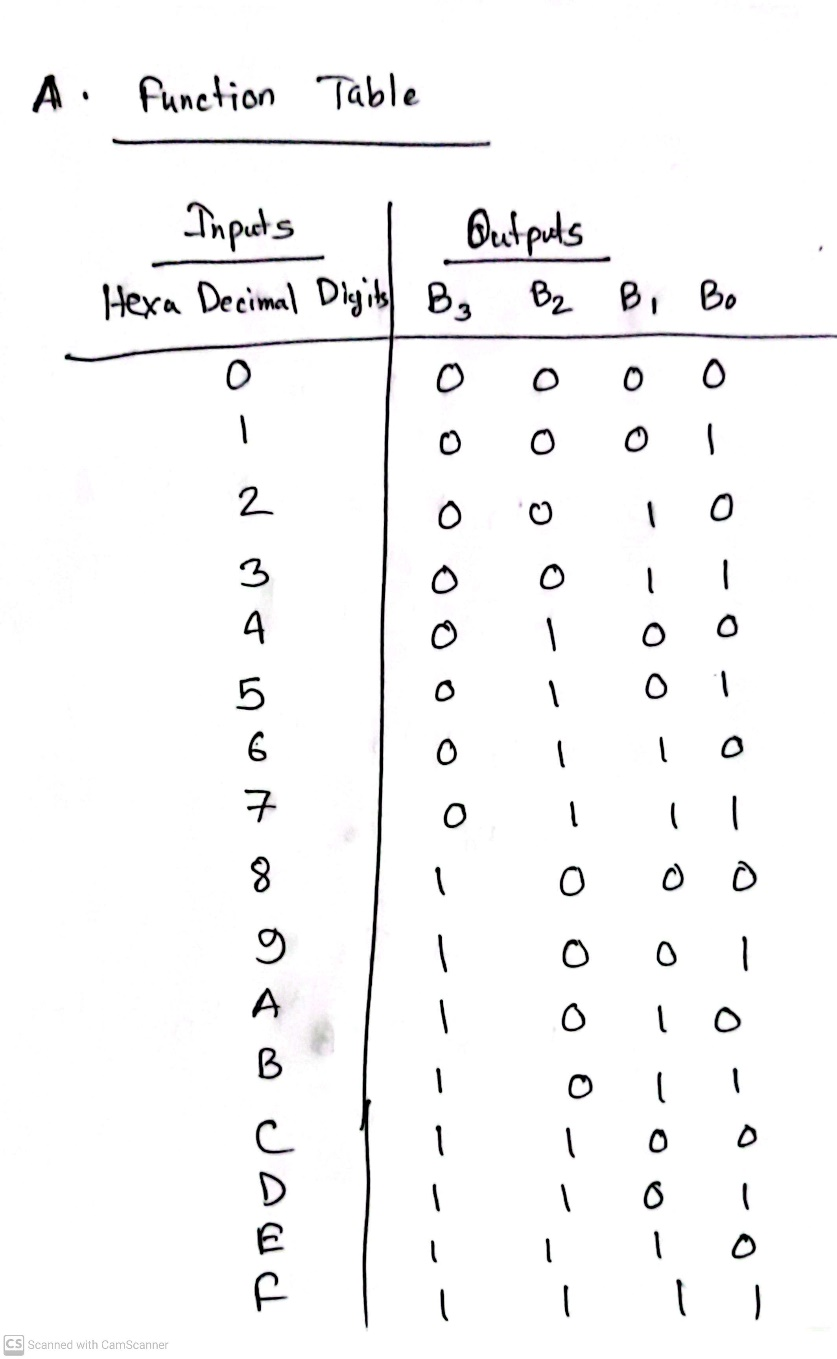 A. Function Table
Inputs Outputs
Hexa Decimal Digits B3 B2 B1 B0
0 0 0 0 0
1 0 0 0 1
2 0 0 1 0
3 0 0 1 1
4 0 1 0 0
5 0 1 0 1
6 0 1 1 0
7 0 1 1 1
8 1 0 0 0
9 1 0 0 1
A 1 0 1 0
B 1 0 1 1
C 1 1 0 0
D 1 1 0 1
E 1 1 1 0
F 1 1 1 1
CS Scanned with CamScanner